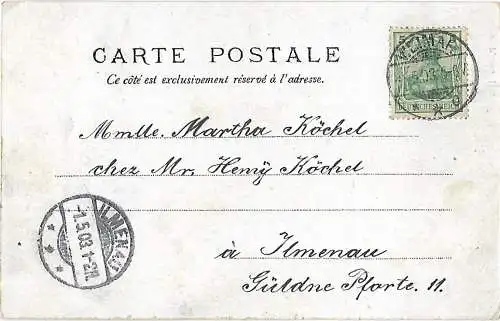 CARTE POSTALE
Ce côté est exclusivement réservé à l'adresse.
WEIMAR
DEUTSCHES REICH
Mmlle. Martha Köchel
chez Mr. Henry Köchel
à Ilmenau
Güldne Pforte. 11.
ILMENAU
-1.5.03.1-2N.